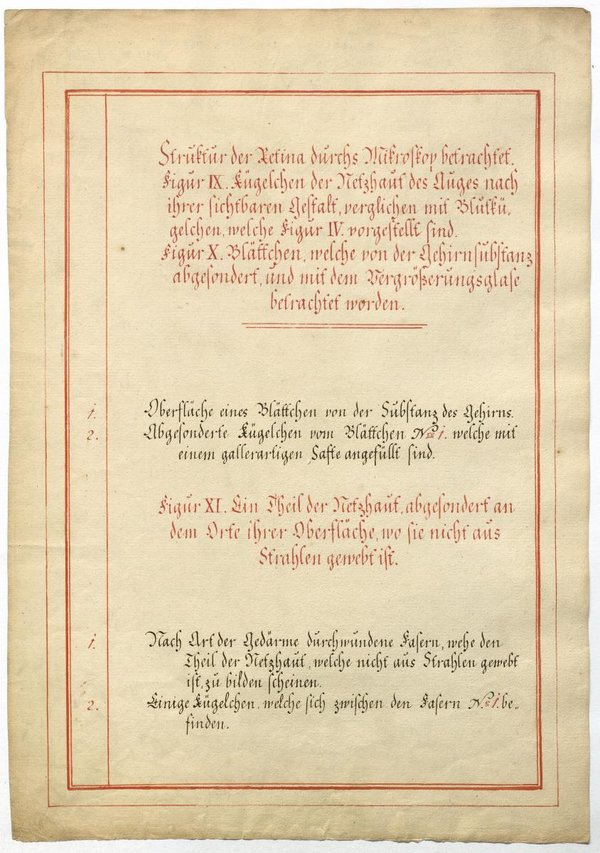 Struktur der Retina durchs Mikroskop betrachtet.
Figur IX. Kügelchen der Netzhaut des Auges nach
ihrer sichtbaren Gestalt, verglichen mit Blutkü,
gelchen, welche Figur IV. vorgestellt sind.
Figur X. Blättchen, welche von der Gehirnsubstanz
abgesondert, und mit dem Vergrößerungsglase
betrachtet worden.
1. Oberfläche eines Blättchen von der Substanz des Gehirns.
2. Abgesonderte Kügelchen vom Blättchen No. 1. welche mit
einem gallerartigen Safte angefüllt sind.
Figur XI. Ein Theil der Netzhaut, abgesondert an
dem Orte ihrer Oberfläche, wo sie nicht aus
Strahlen gewebt ist.
1. Nach Art der Gedärme durchwundene Fasern, wehe den
Theil der Netzhaut, welche nicht aus Strahlen gewebt
ist, zu bilden scheinen.
2. Einige Kügelchen, welche sich zwischen den Fasern No. 1. be„
finden.